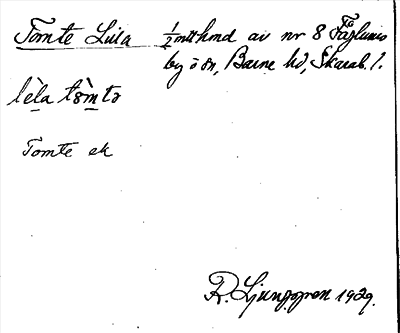 Tomte Lilla ½ mtl hmd av nr 8 Fåglums
by ö ån, Barne hd, Skarab. l.
lèla tòmtə
Tomte ek
R. Ljunggren 1929.